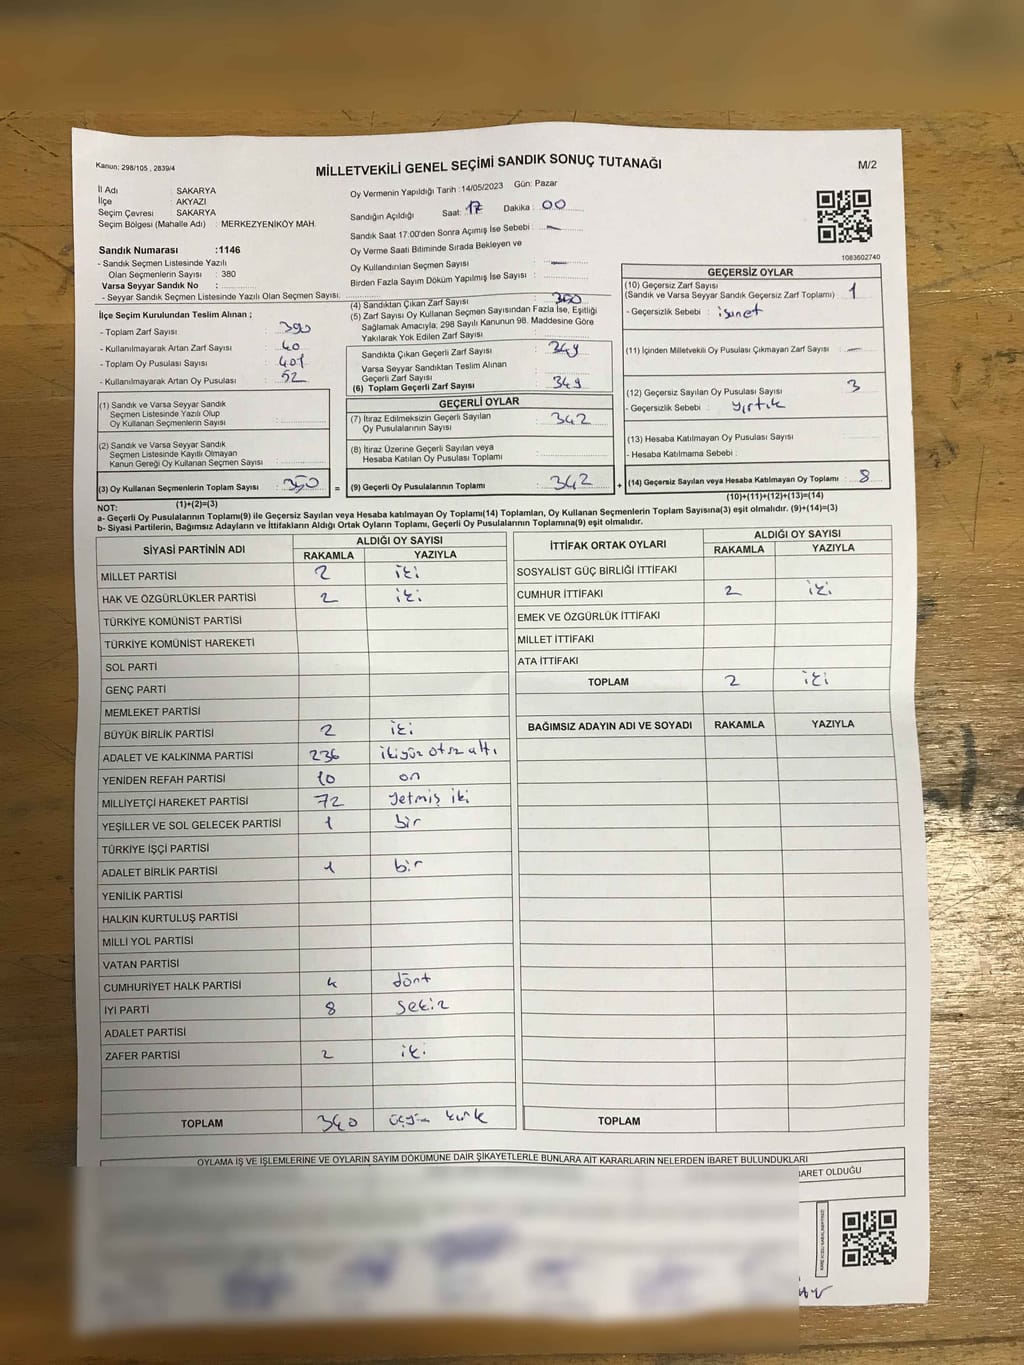 Kanun: 298/105 , 2839/4
MİLLETVEKİLİ GENEL SEÇİMİ SANDIK SONUÇ TUTANAĞI
M/2
İl Adı : SAKARYA
İlçe : AKYAZI
Seçim Çevresi : SAKARYA
Seçim Bölgesi (Mahalle Adı) : MERKEZYENİKÖY MAH.
Oy Vermenin Yapıldığı Tarih :14/05/2023 Gün: Pazar
Sandığın Açıldığı Saat: 17 Dakika : 00
Sandık Saat 17:00'den Sonra Açımış İse Sebebi : —
Oy Verme Saati Bitiminde Sırada Bekleyen ve
Oy Kullandırılan Seçmen Sayısı : —
Birden Fazla Sayım Döküm Yapılmış İse Sayısı :
Sandık Numarası :1146
- Sandık Seçmen Listesinde Yazılı
Olan Seçmenlerin Sayısı : 380
Varsa Seyyar Sandık No :
- Seyyar Sandık Seçmen Listesinde Yazılı Olan Seçmen Sayısı:
1083602740
İlçe Seçim Kurulundan Teslim Alınan ;
- Toplam Zarf Sayısı : 390
- Kullanılmayarak Artan Zarf Sayısı : 40
- Toplam Oy Pusulası Sayısı : 401
- Kullanılmayarak Artan Oy Pusulası : 52
(1) Sandık ve Varsa Seyyar Sandık
Seçmen Listesinde Yazılı Olup
Oy Kullanan Seçmenlerin Sayısı :
(2) Sandık ve Varsa Seyyar Sandık
Seçmen Listesinde Kayıtlı Olmayan
Kanun Gereği Oy Kullanan Seçmen Sayısı :
(3) Oy Kullanan Seçmenlerin Toplam Sayısı : 350 =
(1)+(2)=(3)
(4) Sandıktan Çıkan Zarf Sayısı : 350
(5) Zarf Sayısı Oy Kullanan Seçmen Sayısından Fazla İse, Eşitliği
Sağlamak Amacıyla; 298 Sayılı Kanunun 98. Maddesine Göre
Yakılarak Yok Edilen Zarf Sayısı :
Sandıkta Çıkan Geçerli Zarf Sayısı : 349
Varsa Seyyar Sandıktan Teslim Alınan
Geçerli Zarf Sayısı :
(6) Toplam Geçerli Zarf Sayısı : 349
GEÇERLİ OYLAR
(7) İtiraz Edilmeksizin Geçerli Sayılan
Oy Pusulalarının Sayısı : 342
(8) İtiraz Üzerine Geçerli Sayılan veya
Hesaba Katılan Oy Pusulası Toplamı :
(9) Geçerli Oy Pusulalarının Toplamı : 342 +
GEÇERSİZ OYLAR
(10) Geçersiz Zarf Sayısı
(Sandık ve Varsa Seyyar Sandık Geçersiz Zarf Toplamı) : 1
- Geçersizlik Sebebi :
(11) İçinden Milletvekili Oy Pusulası Çıkmayan Zarf Sayısı : —
(12) Geçersiz Sayılan Oy Pusulası Sayısı : 3
- Geçersizlik Sebebi : yırtık
(13) Hesaba Katılmayan Oy Pusulası Sayısı :
- Hesaba Katılmama Sebebi :
(14) Geçersiz Sayılan veya Hesaba Katılmayan Oy Toplamı : 8
(10)+(11)+(12)+(13)=(14)
NOT:
a- Geçerli Oy Pusulalarının Toplamı(9) ile Geçersiz Sayılan veya Hesaba Katılmayan Oy Toplamı(14) Toplamları, Oy Kullanan Seçmenlerin Toplam Sayısına(3) eşit olmalıdır. (9)+(14)=(3)
b- Siyasi Partilerin, Bağımsız Adayların ve İttifakların Aldığı Ortak Oyların Toplamı, Geçerli Oy Pusulalarının Toplamına(9) eşit olmalıdır.
SİYASİ PARTİNİN ADI ALDIĞI OY SAYISI
RAKAMLA YAZIYLA
MİLLET PARTİSİ 2 iki
HAK VE ÖZGÜRLÜKLER PARTİSİ 2 iki
TÜRKİYE KOMÜNİST PARTİSİ
TÜRKİYE KOMÜNİST HAREKETİ
SOL PARTİ
GENÇ PARTİ
MEMLEKET PARTİSİ
BÜYÜK BİRLİK PARTİSİ 2 iki
ADALET VE KALKINMA PARTİSİ 236 ikiyüz otuz altı
YENİDEN REFAH PARTİSİ 10 on
MİLLİYETÇİ HAREKET PARTİSİ 72 yetmiş iki
YEŞİLLER VE SOL GELECEK PARTİSİ 1 bir
TÜRKİYE İŞÇİ PARTİSİ
ADALET BİRLİK PARTİSİ 1 bir
YENİLİK PARTİSİ
HALKIN KURTULUŞ PARTİSİ
MİLLİ YOL PARTİSİ
VATAN PARTİSİ
CUMHURİYET HALK PARTİSİ 4 dört
İYİ PARTİ 8 sekiz
ADALET PARTİSİ
ZAFER PARTİSİ 2 iki
TOPLAM 340 üçyüz kırk
İTTİFAK ORTAK OYLARI ALDIĞI OY SAYISI
RAKAMLA YAZIYLA
SOSYALİST GÜÇ BİRLİĞİ İTTİFAKI
CUMHUR İTTİFAKI 2 iki
EMEK VE ÖZGÜRLÜK İTTİFAKI
MİLLET İTTİFAKI
ATA İTTİFAKI
TOPLAM 2 iki
BAĞIMSIZ ADAYIN ADI VE SOYADI RAKAMLA YAZIYLA
TOPLAM
OYLAMA İŞ VE İŞLEMLERİNE VE OYLARIN SAYIM DÖKÜMÜNE DAİR ŞİKAYETLERLE BUNLARA AİT KARARLARIN NELERDEN İBARET BULUNDUKLARI
BARET OLDUĞU